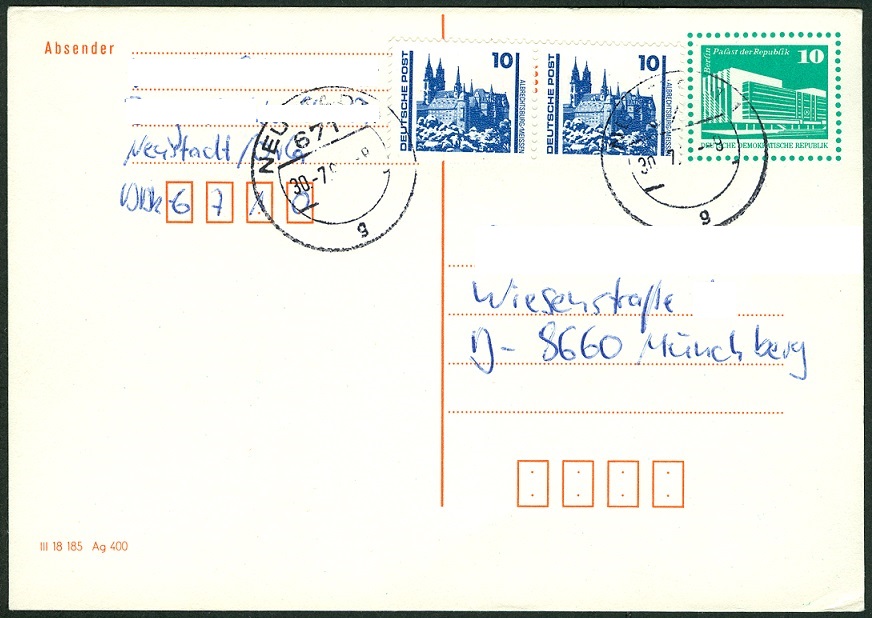 Absender
Neustadt/
DDR- 6 7 1 0
NEU
671
30.-7.
g
DEUTSCHE POST
10
ALBRECHTSBURG MEISSEN
DEUTSCHE POST
10
ALBRECHTSBURG MEISSEN
30.-7.
g
Berlin Palast der Republik
10
DEUTSCHE DEMOKRATISCHE REPUBLIK
Wiesenstraße
D- 8660 Münchberg
III 18 185 Ag 400